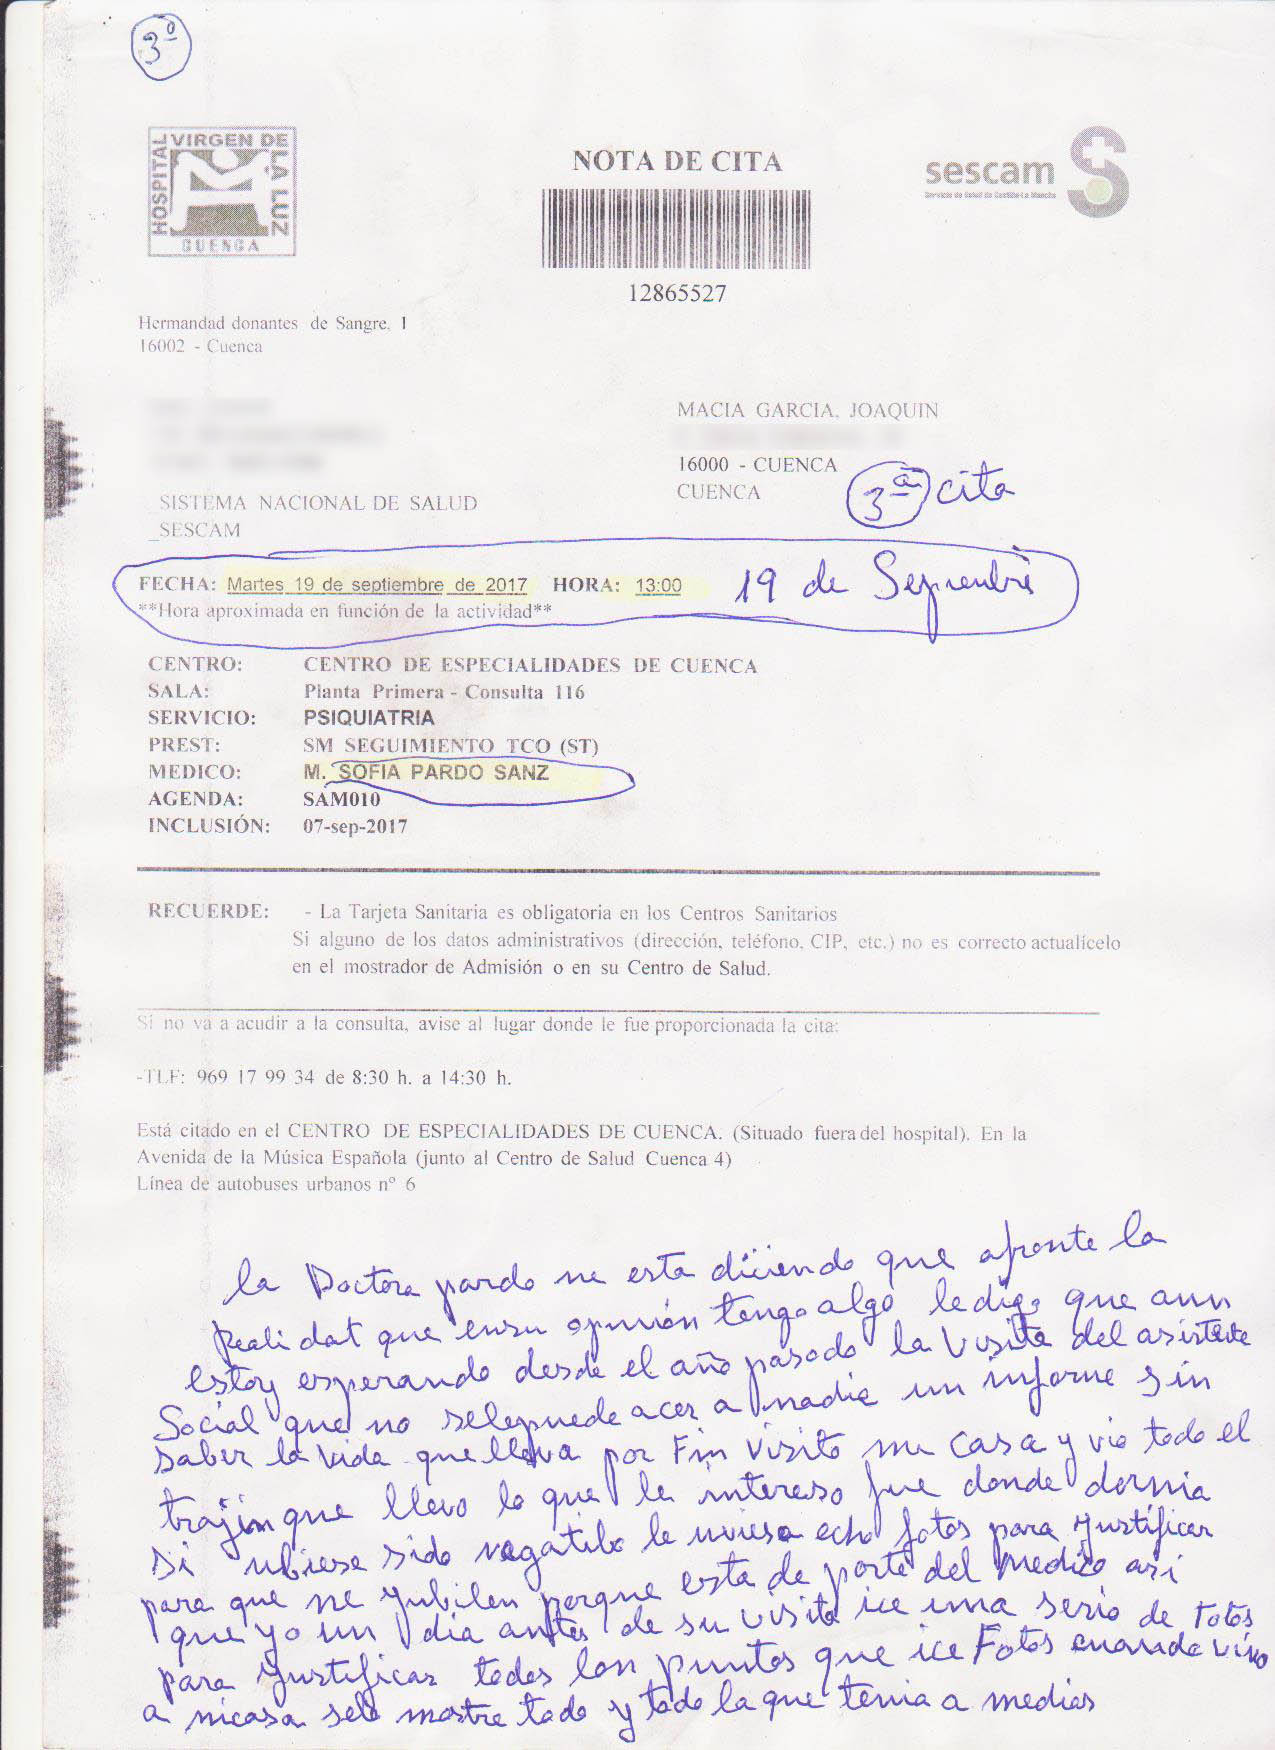 3º
HOSPITAL VIRGEN DE LA LUZ
CUENCA
NOTA DE CITA
sescam
Servicio de Salud de Castilla-La Mancha
12865527
Hermandad donantes de Sangre, 1
16002 - Cuenca
MACIA GARCIA, JOAQUIN
16000 - CUENCA
CUENCA
3ª cita
SISTEMA NACIONAL DE SALUD
_SESCAM
FECHA: Martes 19 de septiembre de 2017 HORA: 13:00 19 de Sepienbre
**Hora aproximada en función de la actividad**
CENTRO: CENTRO DE ESPECIALIDADES DE CUENCA
SALA: Planta Primera - Consulta 116
SERVICIO: PSIQUIATRIA
PREST: SM SEGUIMIENTO TCO (ST)
MEDICO: M. SOFIA PARDO SANZ
AGENDA: SAM010
INCLUSIÓN: 07-sep-2017
RECUERDE: - La Tarjeta Sanitaria es obligatoria en los Centros Sanitarios
Si alguno de los datos administrativos (dirección, teléfono, CIP, etc.) no es correcto actualícelo
en el mostrador de Admisión o en su Centro de Salud.
Si no va a acudir a la consulta, avise al lugar donde le fue proporcionada la cita:
-TLF: 969 17 99 34 de 8:30 h. a 14:30 h.
Está citado en el CENTRO DE ESPECIALIDADES DE CUENCA. (Situado fuera del hospital). En la
Avenida de la Música Española (junto al Centro de Salud Cuenca 4)
Línea de autobuses urbanos nº 6
la Doctora pardo me esta diciendo que afronte la
Realidat que ensu opinión tengo algo le digo que aun
estoy esperando desde el año pasado la Visita del asistente
Social que no selepuede acer a nadie un informe sin
saber la vida que lleva por Fin visito mi casa y vio todo el
trajin que llevo lo que le intereso fue donde dormia
si ubiese sido negatibo le uviese echo fotos para justificar
para que me jubilen porque esta de porte del medico asi
que yo un dia antes de su visita ice una serio de fotos
para justificar todos los puntos que ice Fotos cuando vino
a micasa sele mostre todo y todo la que tenia a medias